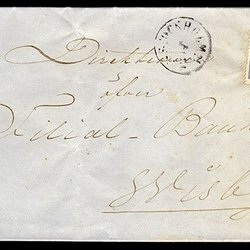 STOCKHOLM
Direktionen
öfver
Filial-Ban
Wisb